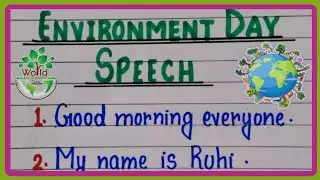 ENVIRONMENT DAY
SPEECH
World
1. Good morning everyone.
2. My name is Ruhi.